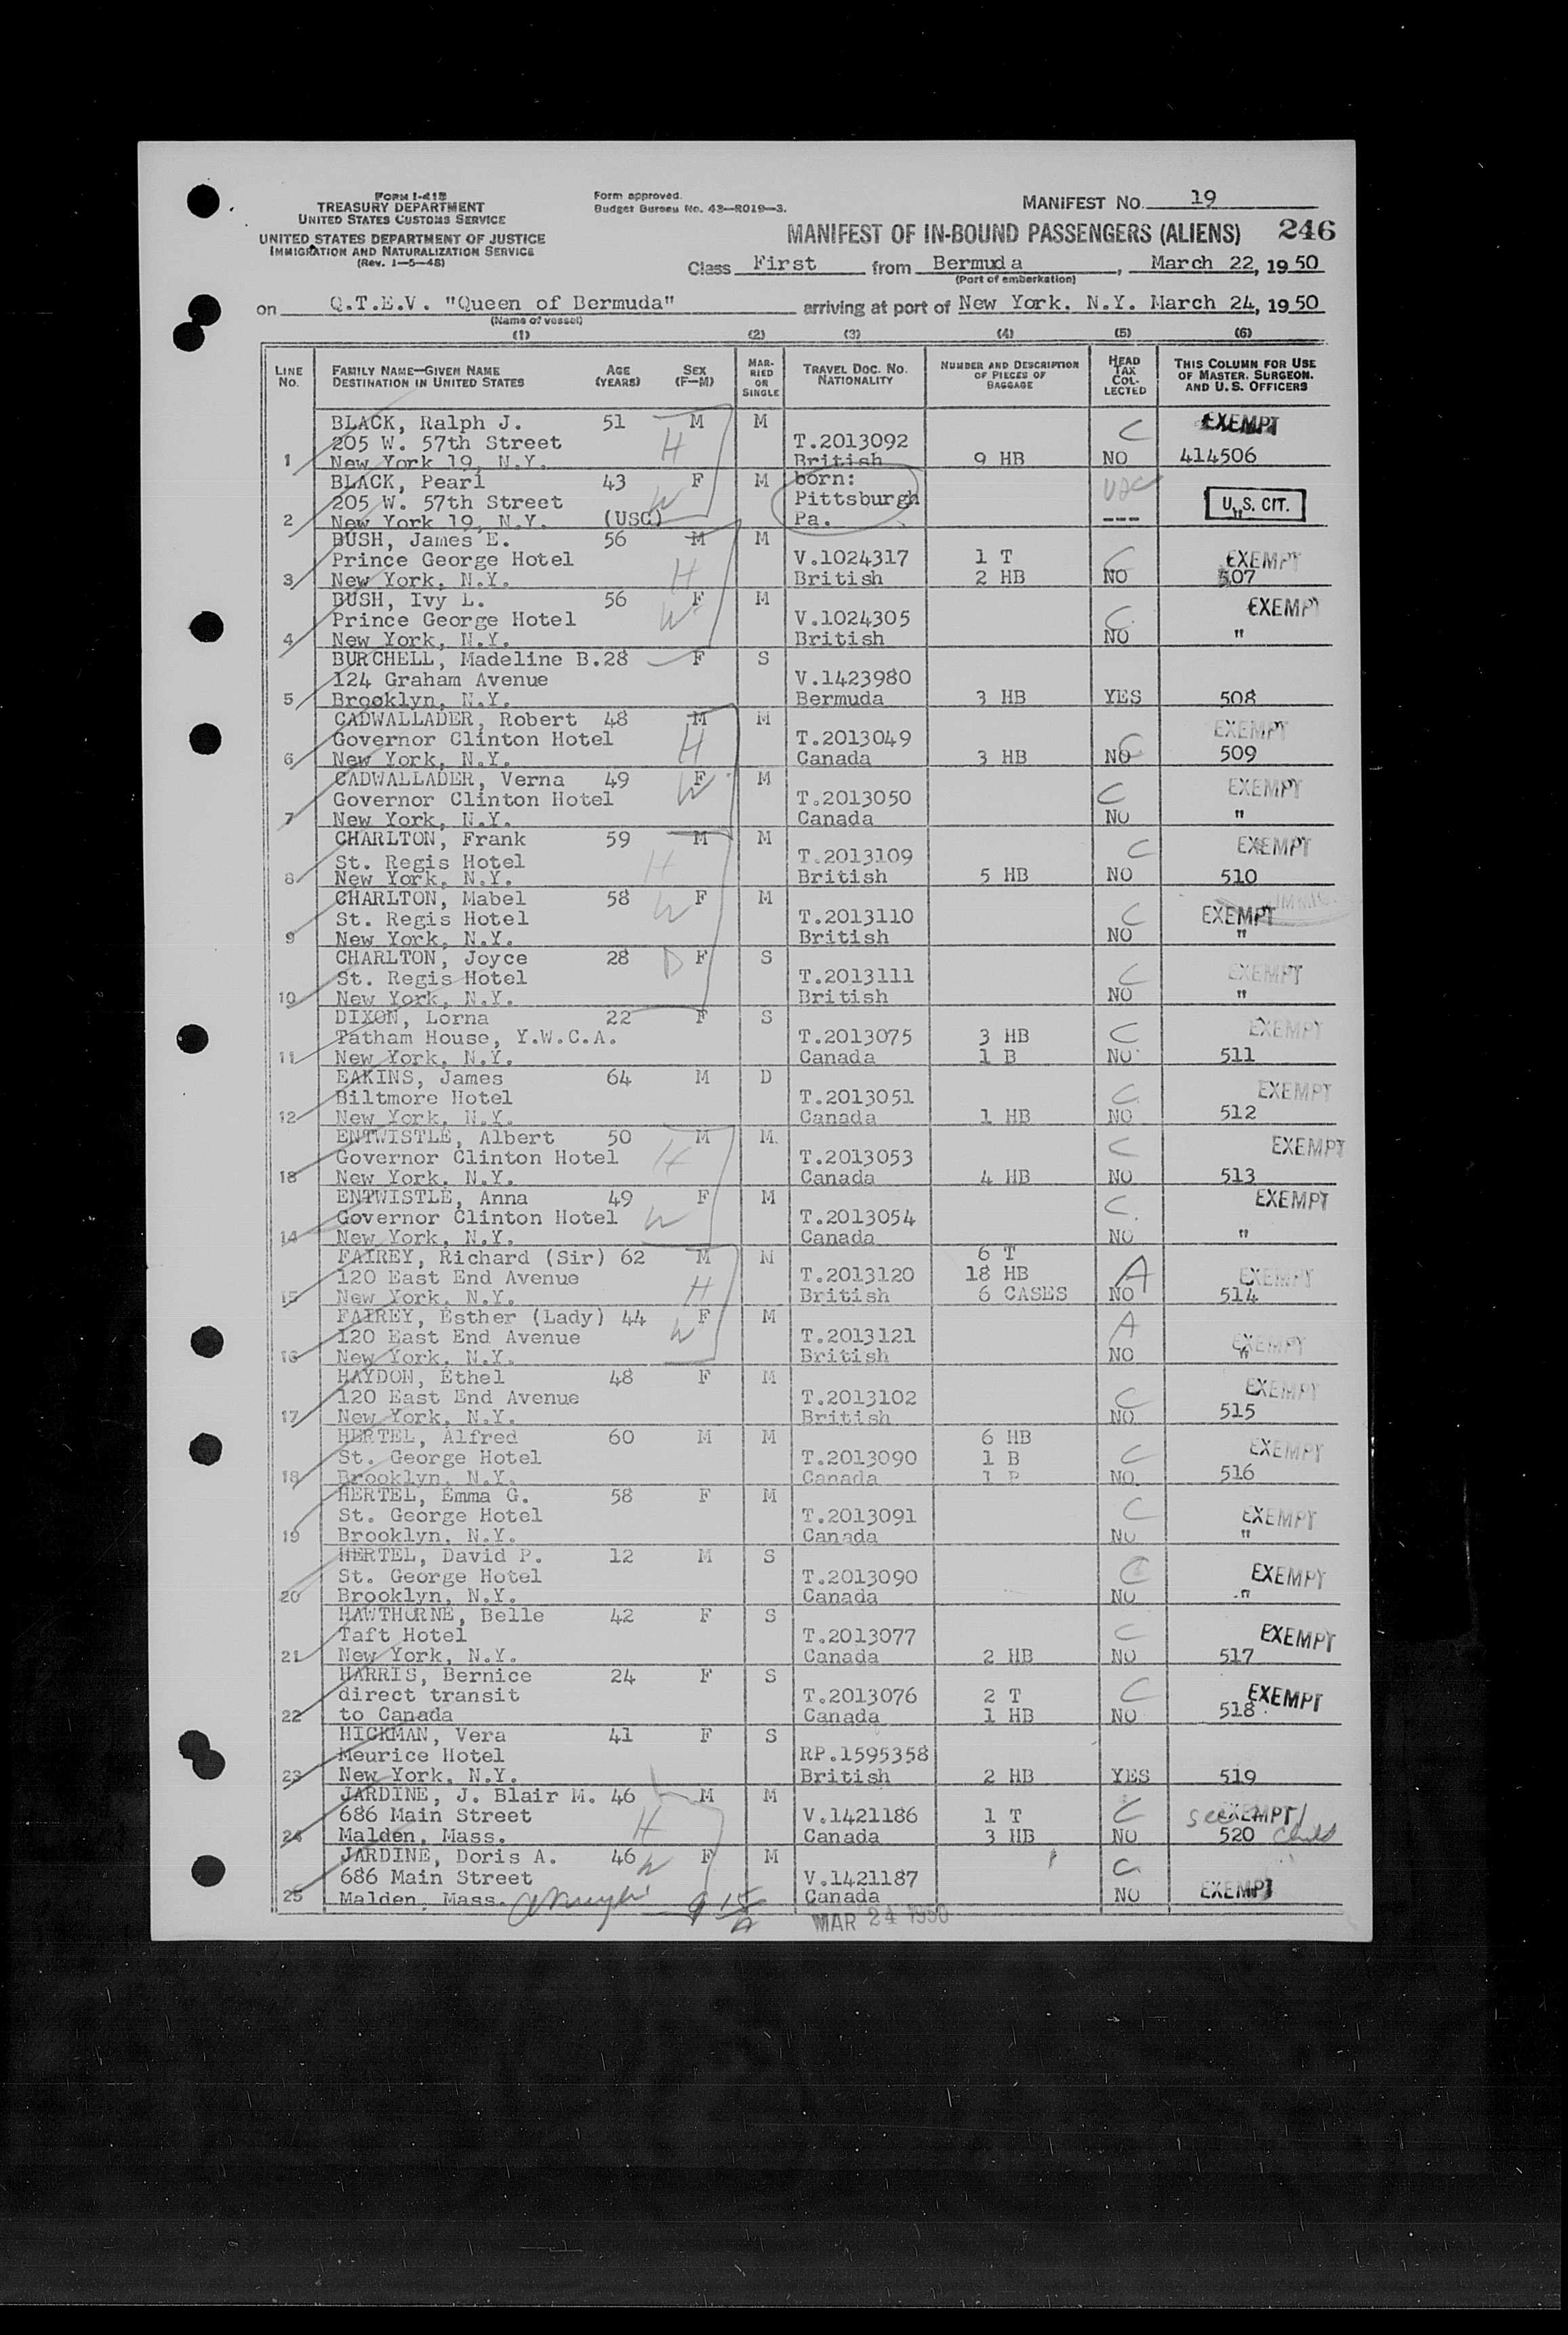 FORM I-418
TREASURY DEPARTMENT
UNITED STATES CUSTOMS SERVICE
UNITED STATES DEPARTMENT OF JUSTICE
IMMIGRATION AND NATURALIZATION SERVICE
(Rev. 1-5-48)
Form approved.
Budget Bureau No. 43-R019-3.
MANIFEST NO. 19
MANIFEST OF IN-BOUND PASSENGERS (ALIENS) 246
Class First from Bermuda, March 22, 1950
(Port of embarkation)
on Q.T.E.V. "Queen of Bermuda" arriving at port of New York. N.Y. March 24, 1950
(Name of vessel)
(1) (2) (3) (4) (5) (6)
LINE No. FAMILY NAME—GIVEN NAME DESTINATION IN UNITED STATES AGE (YEARS) SEX (F—M) MARRIED OR SINGLE TRAVEL DOC. NO. NATIONALITY NUMBER AND DESCRIPTION OF PIECES OF BAGGAGE HEAD TAX COLLECTED THIS COLUMN FOR USE OF MASTER, SURGEON, AND U. S. OFFICERS
BLACK, Ralph J. 51 M M C EXEMPT
205 W. 57th Street H T.2013092
1 New York 19, N.Y. British 9 HB NO 414506
BLACK, Pearl 43 F M born:
205 W. 57th Street W Pittsburgh USC U.S. CIT.
2 New York 19, N.Y. (USC) Pa. --- "
BUSH, James E. 56 M M
Prince George Hotel V.1024317 1 T C EXEMPT
3 New York, N.Y. H British 2 HB NO 507
BUSH, Ivy L. 56 F M EXEMPT
Prince George Hotel W V.1024305 C
4 New York, N.Y. British NO "
BURCHELL, Madeline B. 28 F S
124 Graham Avenue V.1423980
5 Brooklyn, N.Y. Bermuda 3 HB YES 508
CADWALLADER, Robert 48 M M EXEMPT
Governor Clinton Hotel H T.2013049 C
6 New York, N.Y. Canada 3 HB NO 509
CADWALLADER, Verna 49 F M EXEMPT
Governor Clinton Hotel W T.2013050 C
7 New York, N.Y. Canada NO "
CHARLTON, Frank 59 M M EXEMPT
St. Regis Hotel H T.2013109 C
8 New York, N.Y. British 5 HB NO 510
CHARLTON, Mabel 58 F M IMMIG.
St. Regis Hotel W T.2013110 C EXEMPT
9 New York, N.Y. British NO "
CHARLTON, Joyce 28 D F S
St. Regis Hotel T.2013111 C EXEMPT
10 New York, N.Y. British NO "
DIXON, Lorna 22 F S EXEMPT
Tatham House, Y.W.C.A. T.2013075 3 HB C
11 New York, N.Y. Canada 1 B NO 511
EAKINS, James 64 M D EXEMPT
Biltmore Hotel T.2013051 C
12 New York, N.Y. Canada 1 HB NO 512
ENTWISTLE, Albert 50 M M. EXEMPT
Governor Clinton Hotel H T.2013053 C
13 New York, N.Y. Canada 4 HB NO 513
ENTWISTLE, Anna 49 F M EXEMPT
Governor Clinton Hotel W T.2013054 C
14 New York, N.Y. Canada NO "
FAIREY, Richard (Sir) 62 M M 6 T
120 East End Avenue T.2013120 18 HB A EXEMPT
15 New York, N.Y. H British 6 CASES NO 514
FAIREY, Esther (Lady) 44 F M A
120 East End Avenue W T.2013121 EXEMPT
16 New York, N.Y. British NO "
HAYDON, Ethel 48 F M EXEMPT
120 East End Avenue T.2013102 C
17 New York, N.Y. British NO 515
HERTEL, Alfred 60 M M 6 HB
St. George Hotel T.2013090 1 B C EXEMPT
18 Brooklyn, N.Y. Canada 1 P NO 516
HERTEL, Emma G. 58 F M
St. George Hotel T.2013091 C EXEMPT
19 Brooklyn, N.Y. Canada NO "
HERTEL, David P. 12 M S
St. George Hotel T.2013090 C EXEMPT
20 Brooklyn, N.Y. Canada NO "
HAWTHORNE, Belle 42 F S
Taft Hotel T.2013077 C EXEMPT
21 New York, N.Y. Canada 2 HB NO 517
HARRIS, Bernice 24 F S
direct transit T.2013076 2 T C EXEMPT
22 to Canada Canada 1 HB NO 518
HICKMAN, Vera 41 F S
Meurice Hotel RP.1595358
23 New York, N.Y. British 2 HB YES 519
JARDINE, J. Blair M. 46 M M
686 Main Street H V.1421186 1 T C see EXEMPT
24 Malden, Mass. Canada 3 HB NO 520 child
JARDINE, Doris A. 46 W F M C
686 Main Street V.1421187
25 Malden, Mass. Canada NO EXEMPT
MAR 24 1950